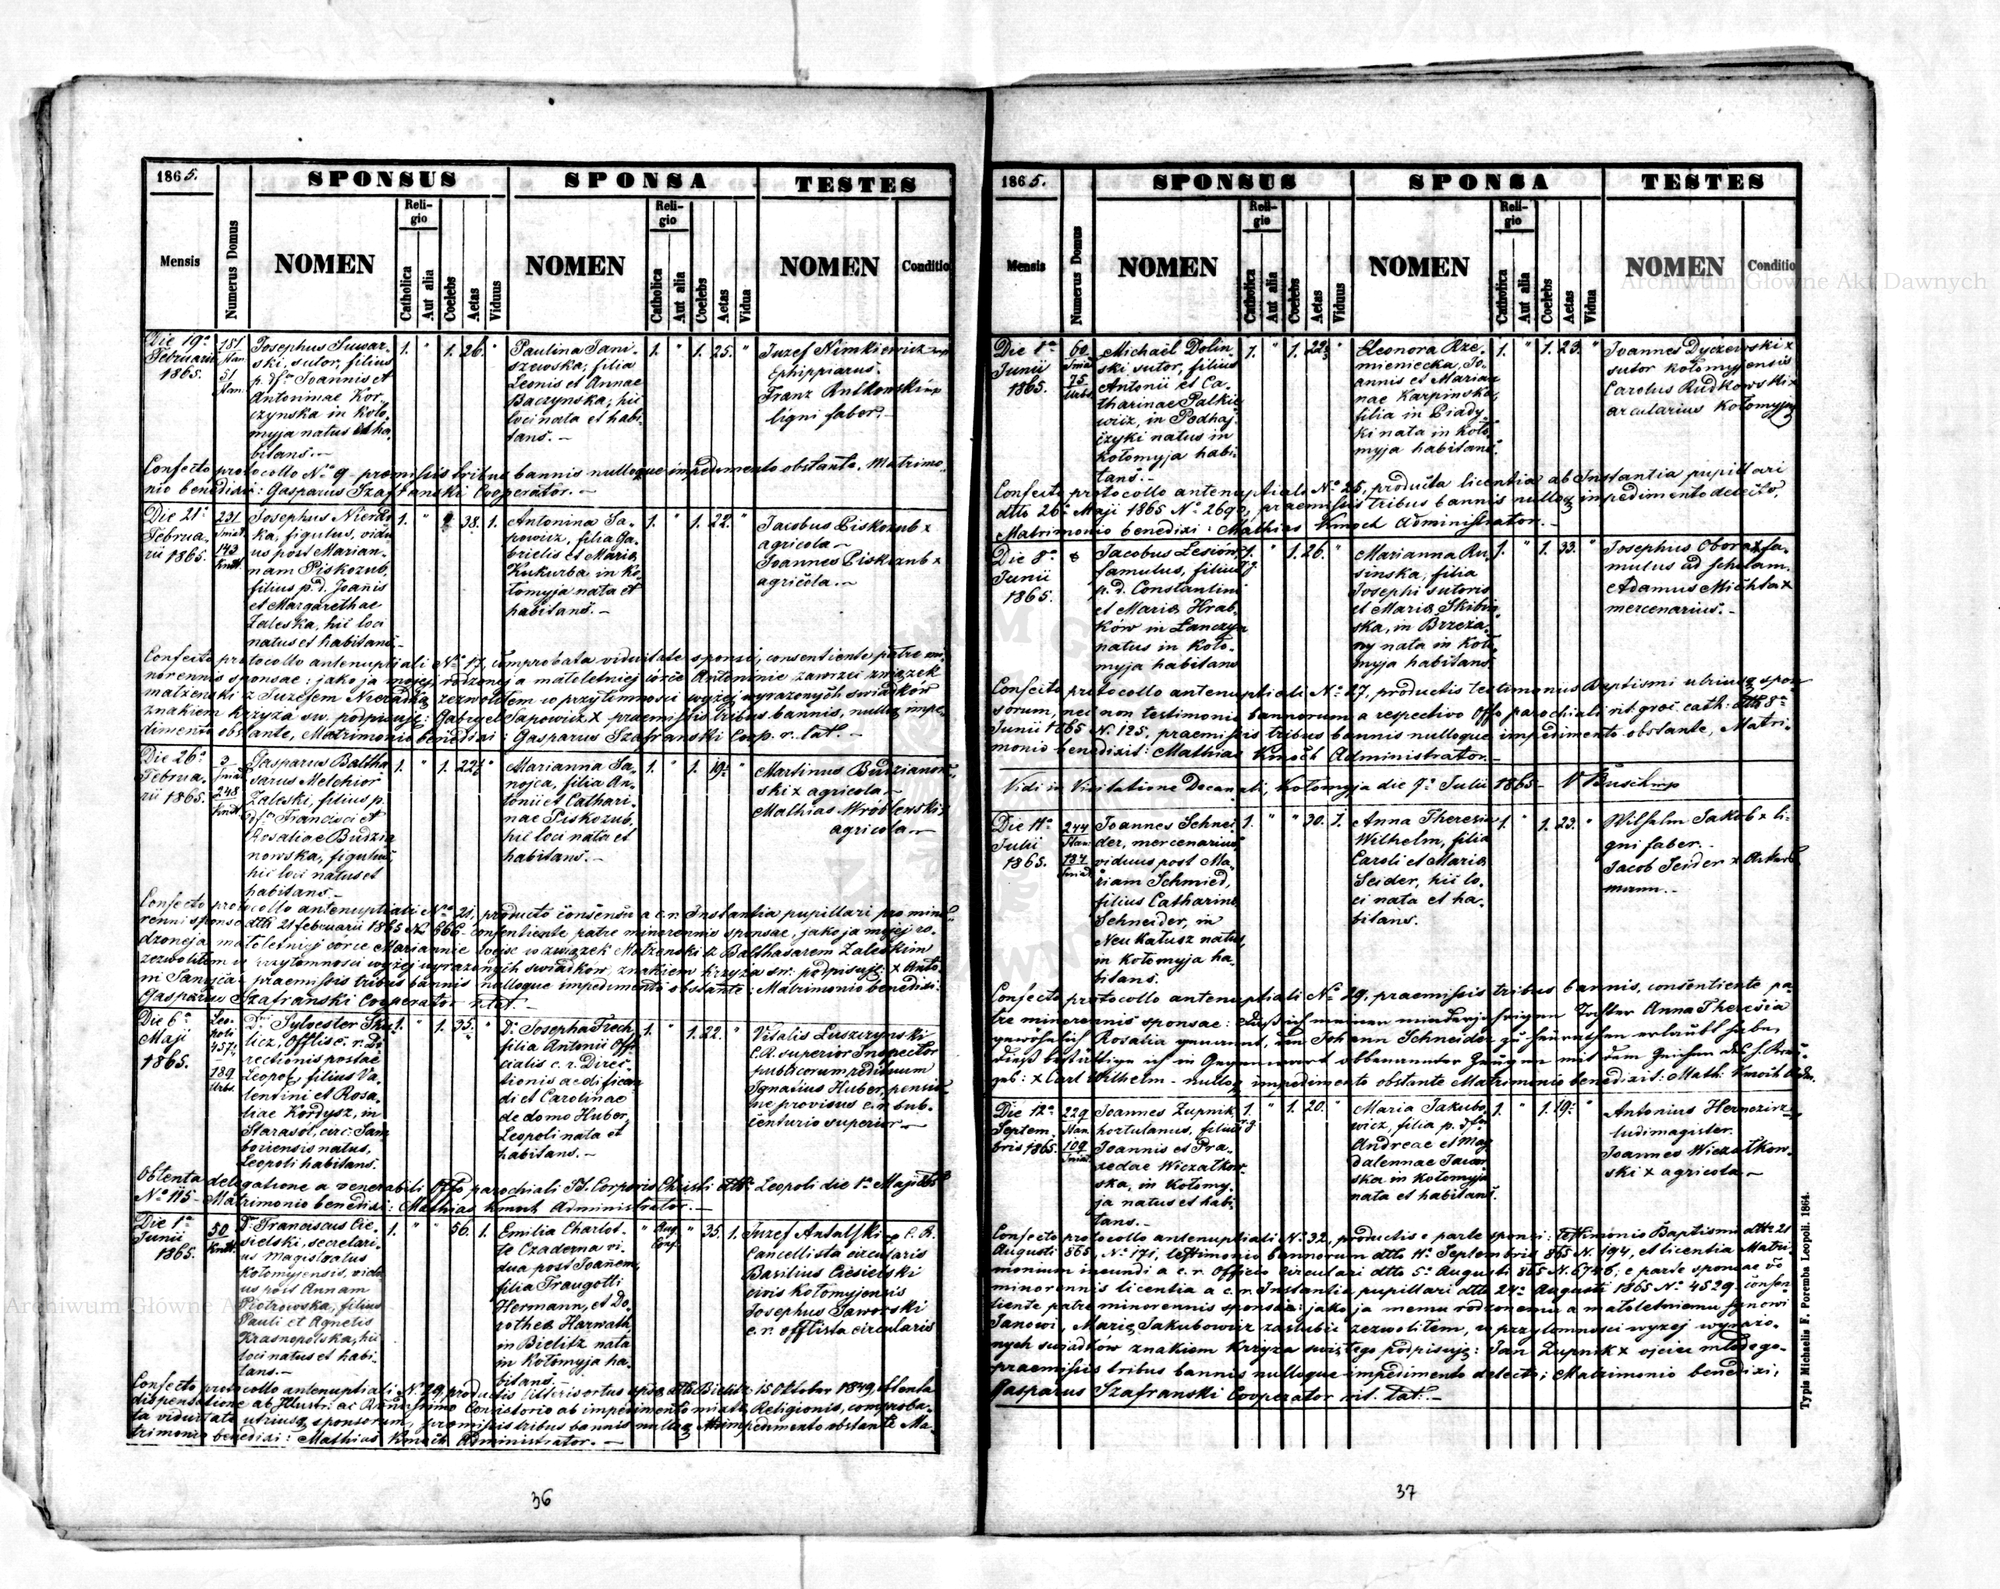 1865.
SPONSUS
SPONSA
TESTES
Mensis
Numerus Domus
NOMEN
Religio
Catholica
Aut alia
Coelebs
Aetas
Viduus
NOMEN
Religio
Catholica
Aut alia
Coelebs
Aetas
Vidua
NOMEN
Conditio
Die 19a
Februarii
1865.
181.
51
Josephus Suwar-
ski, sutor, filius
p. dfti Joannis et
Antoninae Kor-
czynska in Koło-
myja natus et ha-
bitans.—
1. " 1. 26. "
Paulina Jani-
szewska, filia
Leonis et Annae
Baczynska, hic
loci nata et habi-
tans.—
1. " 1. 25. "
Juzef Nimkiewicz
Ephippiarus.
Franz Rutkowski
ligni faber.—
Confecto protocollo No 9 praemissis tribus bannis nulloque impedimento obstante. Matrimo-
nio benedixi: Gasparus Szafranski Cooperator.—
Die 21a
Februa-
rii 1865.
231.
143
Josephus Nierad-
ka, figulus, vidu-
us post Marian-
nam Piskozub,
filius p. d. Joannis
et Margarethae
Zaleska, hic loci
natus et habitans.—
1. " 38. 1.
Antonina Sa-
powicz, filia Ga-
brielis et Maria
Kukurba in Ko-
łomyja nata et
habitans.—
1. " 1. 22. "
Jacobus Piskozub x
agricola—
Joannes Piskozub x
agricola.—
Confecto protocollo antenuptiali No 17, comprobata viduitate sponsi, consentiente patre mi-
norennis sponsae: jako ja mojej rodzonej a małoletniej córce Antoninie zawrzeć związek
małżeński z Juzefem Nieradką zezwoliłem w przytomności wyżej wyrażonych świadków
znakiem krzyża św. podpisuję: Gabryel Sapowicz x praemissis tribus bannis, nulloq impe-
dimento obstante, Matrimonio benedixi: Gasparus Szafranski Coop. r. lat.—
Die 26a
Februa-
rii 1865.
2
248
Gasparus Baltha-
sarus Melchior
Zaleski, filius p.
dfti Francisci et
Rosaliae Budzia-
nowska, figulus,
hic loci natus et
habitans.—
1. " 1. 22½ "
Marianna Sa-
nojca, filia An-
tonii et Cathari-
nae Piskozub,
hic loci nata et
habitans.—
1. " 1. 19. "
Martinus Budzianow-
ski x agricola—
Mathias Wróblewski
agricola—
Confecto protocollo antenuptiali No 21, producto consensu a c. r. Instantia pupillari pro mino-
renni sponsa dtto 21 februarii 1865 No 666 consentiente patre minorennis sponsae, jako ja mojej ro-
dzonej a małoletniej córce Mariannie wejść w związek Małżeński z Balthasarem Zaleskim
zezwoliłem w przytomności wyżej wyrażonych świadków, znakiem krzyża św. podpisuję: x Anto-
ni Sanojca praemissis tribus bannis nulloque impedimento obstante: Matrimonio benedixi:
Gasparus Szafranski Cooperator r. lat.—
Die 6a
Maji
1865.
Leo-
poli
457
189
Urbs.
Dr Sylvester Sku-
licz, Offlis c. r. Di-
rectionis postae
Leopol, filius Va-
lentini et Rosa-
liae Kordysz, in
Starasół, circ. Sam-
boriensis natus,
Leopoli habitans.
1. " 1. 35. "
Da Josepha Trech
filia Antonii Offi-
cialis c. r. Direc-
tionis aedifican-
di et Carolinae
de domo Huber,
Leopoli nata et
habitans.—
1. " 1. 22. "
Vitalis Luszczynski
C. R. superior Inspector
publicorum redituum
Ignatius Huber, pensio-
ne provisus c. r. sub-
centurio superior—
Obtenta delegatione a venerabili Offo parochiali SS. Corporis Christi dtto Leopoli die 1a Maji 865
No 115 Matrimonio benedixi: Mathias Kmoch Administrator.—
Die 1a
Junii
1865.
50
Dr Franciscus Cie-
sielski, secretari-
us Magistratus
Kołomyjensis, vidu-
us post Annam
Piotrowska, filius
Pauli et Agnetis
Krasnopolska, hic
loci natus et habi-
tans.—
1. " " 56. 1.
Emilia Charlot-
te Czaderna vi-
dua post Joannem,
filia Traugotti
Hermann, et Do-
rothea Harwath
in Bielitz nata
in Kołomyja ha-
bitans.—
" Aug.
Conf. " 35. 1.
Juzef Antulski c. R.
Cancellista circularis
Basilius Ciesielski
civis Kołomyjensis
Josephus Jaworski
c. r. offlista circularis
Confecto protocollo antenuptiali No 29, productis litteris ortus dtto Bielitz 15 Oktober 1849, obtenta
dispensatione ab Illustr: ac Rendissimo Consistorio ab impedimento mixta Religionis, comproba-
ta viduitate utriusq sponsorum, praemissis tribus bannis nulloq impedimento obstante Ma-
trimonio benedixi: Mathias Kmoch Administrator.—
36
1865.
SPONSUS
SPONSA
TESTES
Mensis
Numerus Domus
NOMEN
Religio
Catholica
Aut alia
Coelebs
Aetas
Viduus
NOMEN
Religio
Catholica
Aut alia
Coelebs
Aetas
Vidua
NOMEN
Conditio
Archiwum Główne Akt Dawnych
Die 1a
Junii
1865.
60
75
Urbs
Michael Dolin-
ski sutor, filius
Antonii et Ca-
tharinae Palkie-
wicz, in Podhaj-
czyki natus in
Kołomyja habi-
tans.—
1. " 1. 22½ "
Eleonora Rze-
mieniecka, Jo-
annis et Marian-
nae Karpinska,
filia in Piady-
ki nata in Koło-
myja habitans.
1. " 1. 23. "
Joannes Dyczewski x
sutor kołomyjensis
Carolus Rudkowski x
arcularius Kołomyja
Confecto protocollo antenuptiali No 25, producta licentia ab Instantia pupillari
dtto 26a Maji 1865 No 2690, praemissis tribus bannis nulloq impedimento detecto,
Matrimonio benedixi: Mathias Kmoch Administrator.—
Die 8a
Junii
1865.
8
Jacobus Lesion,
famulus, filius
p. d. Constantini
et Maria Hrab-
ków in Lanczyn
natus in Koło-
myja habitans
1. " 1. 26. "
Marianna Ru-
sinska, filia
Josephi sutoris
et Maria Skibin-
ska, in Brzeża-
ny nata in Koło-
myja habitans.
1. " 1. 33. "
Josephus Obora x fa-
mulus ad scholam.
Adamus Michta x
mercenarius.—
Confecto protocollo antenuptiali No 27, productis testimoniis Baptismi utriusq spon-
sorum, nec non testimonio bannorum a respectivo Offo parochiali rit. graec. cath: dtto 8a
Junii 1865 N. 125, praemissis tribus bannis nulloque impedimento obstante, Matri-
monio benedixit: Mathias Kmoch Administrator.—
Vidi in Visitatione Decanali, Kołomyja die 9a Julii 1865—
Die 11a
Julii
1865.
244
184
Joannes Schnei-
der, mercenarius
viduus post Ma-
riam Schmied,
filius Catharina
Schneider, in
Neu Kałusz natus,
in Kołomyja ha-
bitans.
1. " " 30. 1.
Anna Theresia
Wilhelm, filia
Caroli et Maria
Seider, hic lo-
ci nata et ha-
bitans.
1. " 1. 23. "
Wilhelm Jakob x li-
gni faber.—
Jacob Seider x Ackers-
mann.—
Confecto protocollo antenuptiali No 29, praemissis tribus bannis, consentiente pa-
tre minorennis sponsae: daß ich meiner minderjährigen Tochter Anna Theresia
gewöhnlich Rosalia genannt, den Johann Schneider zu heurathen erlaubt habe,
dieß bestättige ich in Gegenwart obbenannter Zeugen mit dem Zeichen des h. Kreu-
zes: x Carl Wilhelm— nulloq impedimento obstante Matrimonio benedixit: Math: Kmoch Adm.
Die 12a
Septem-
bris 1865.
229
109
Joannes Zupnik
hortulanus, filius
Joannis et Pra-
xedae Wiczałkow-
ska, in Kołomy-
ja natus et habi-
tans.—
1. " 1. 20. "
Maria Jakubo-
wicz, filia p. dfti
Andreae et Mag-
dalennae Jawor-
ska in Kołomyja
nata et habitans.
1. " 1. 19. "
Antonius Hernozirz
ludimagister.
Joannes Wiczałkow-
ski x agricola—
Confecto protocollo antenuptiali No 32, productis e parte sponsi: Testimonio Baptismi dtto 21
Augusti 865, No 171, testimonio bannorum dtto 11a Septembris 865 N. 194, et licentia Matri-
monium ineundi a c. r. Officio circulari dtto 5a Augusti 865 N. 6746; e parte sponsae vo
minorennis licentia a c. r. Instantia pupillari dtto 24a Augusti 1865 No 4529 consen-
tiente patre minorennis sponsi: jako ja memu rodzonemu a małoletniemu synowi
Janowi, Marię Jakubowicz zaślubić zezwoliłem, w przytomności wyżej wyrażo-
nych świadków znakiem krzyża świętego podpisuję: Jan Zupnik x ojciec młodego—
praemissis tribus bannis nulloque impedimento detecto; Matrimonio benedixi;
Gasparus Szafranski Cooperator rit. lat.—
Typis Michaelis F. Poremba Leopoli. 1864.
37